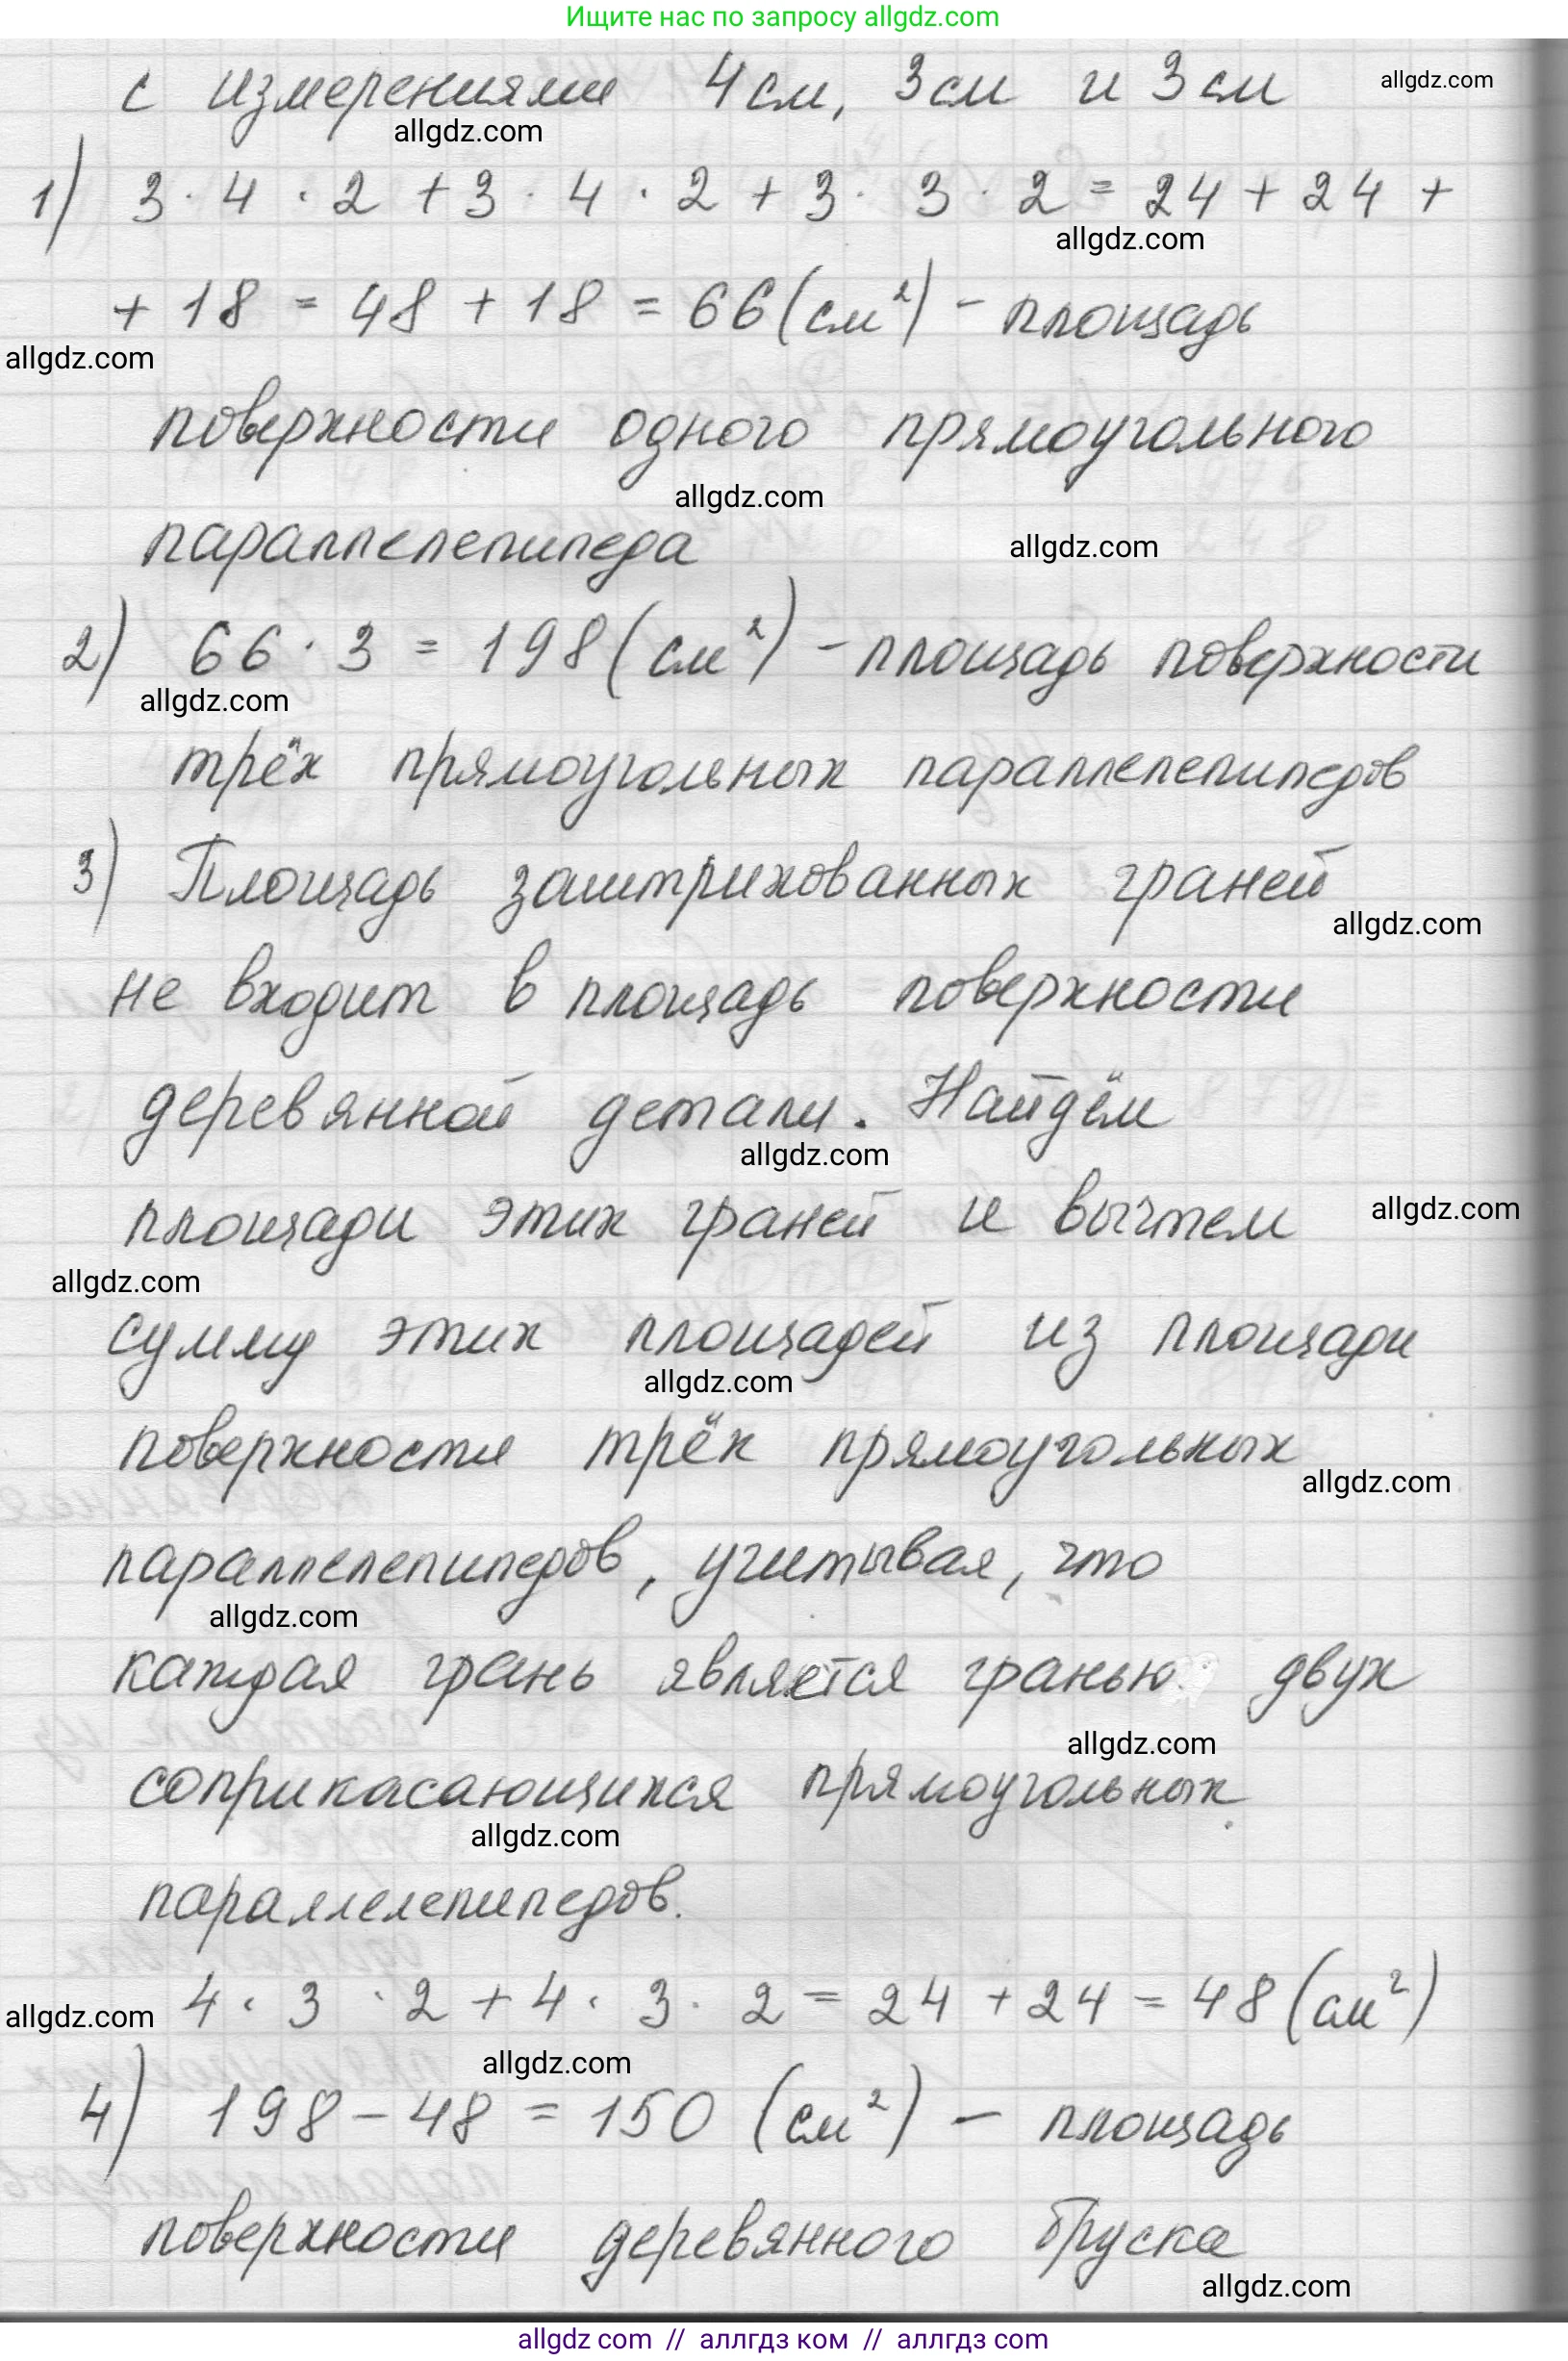 Ищите нас по запросу allgdz.com
с измерениями 4 см, 3 см и 3 см allgdz.com
allgdz.com
1) 3 · 4 · 2 + 3 · 4 · 2 + 3 · 3 · 2 = 24 + 24 +
allgdz.com
+ 18 = 48 + 18 = 66 (см²) – площадь
allgdz.com
поверхности одного прямоугольного
allgdz.com
параллелепипеда allgdz.com
2) 66 · 3 = 198 (см²) – площадь поверхности
allgdz.com
трёх прямоугольных параллелепипедов
3) Площадь заштрихованных граней
allgdz.com
не входит в площадь поверхности
деревянной детали. Найдём
allgdz.com
площади этих граней и вычтем allgdz.com
allgdz.com
сумму этих площадей из площади
allgdz.com
поверхности трёх прямоугольных
allgdz.com
параллелепипедов, учитывая, что
allgdz.com
каждая грань является гранью двух
allgdz.com
соприкасающихся прямоугольных
allgdz.com
параллелепипедов.
allgdz.com 4 · 3 · 2 + 4 · 3 · 2 = 24 + 24 = 48 (см²)
allgdz.com
4) 198 – 48 = 150 (см²) – площадь
поверхности деревянного бруска
allgdz.com
allgdz com // аллгдз ком // аллгдз com